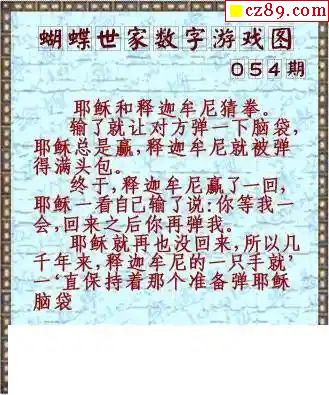 cz89.com
蝴蝶世家数字游戏图
054期
耶稣和释迦牟尼猜拳。
输了就让对方弹一下脑袋,
耶稣总是赢,释迦牟尼就被弹
得满头包。
终于,释迦牟尼赢了一回,
耶稣一看自己输了说:你等我一
会,回来之后你再弹我。
耶稣就再也没回来,所以几
千年来,释迦牟尼的一只手就'
一'直保持着那个准备弹耶稣
脑袋